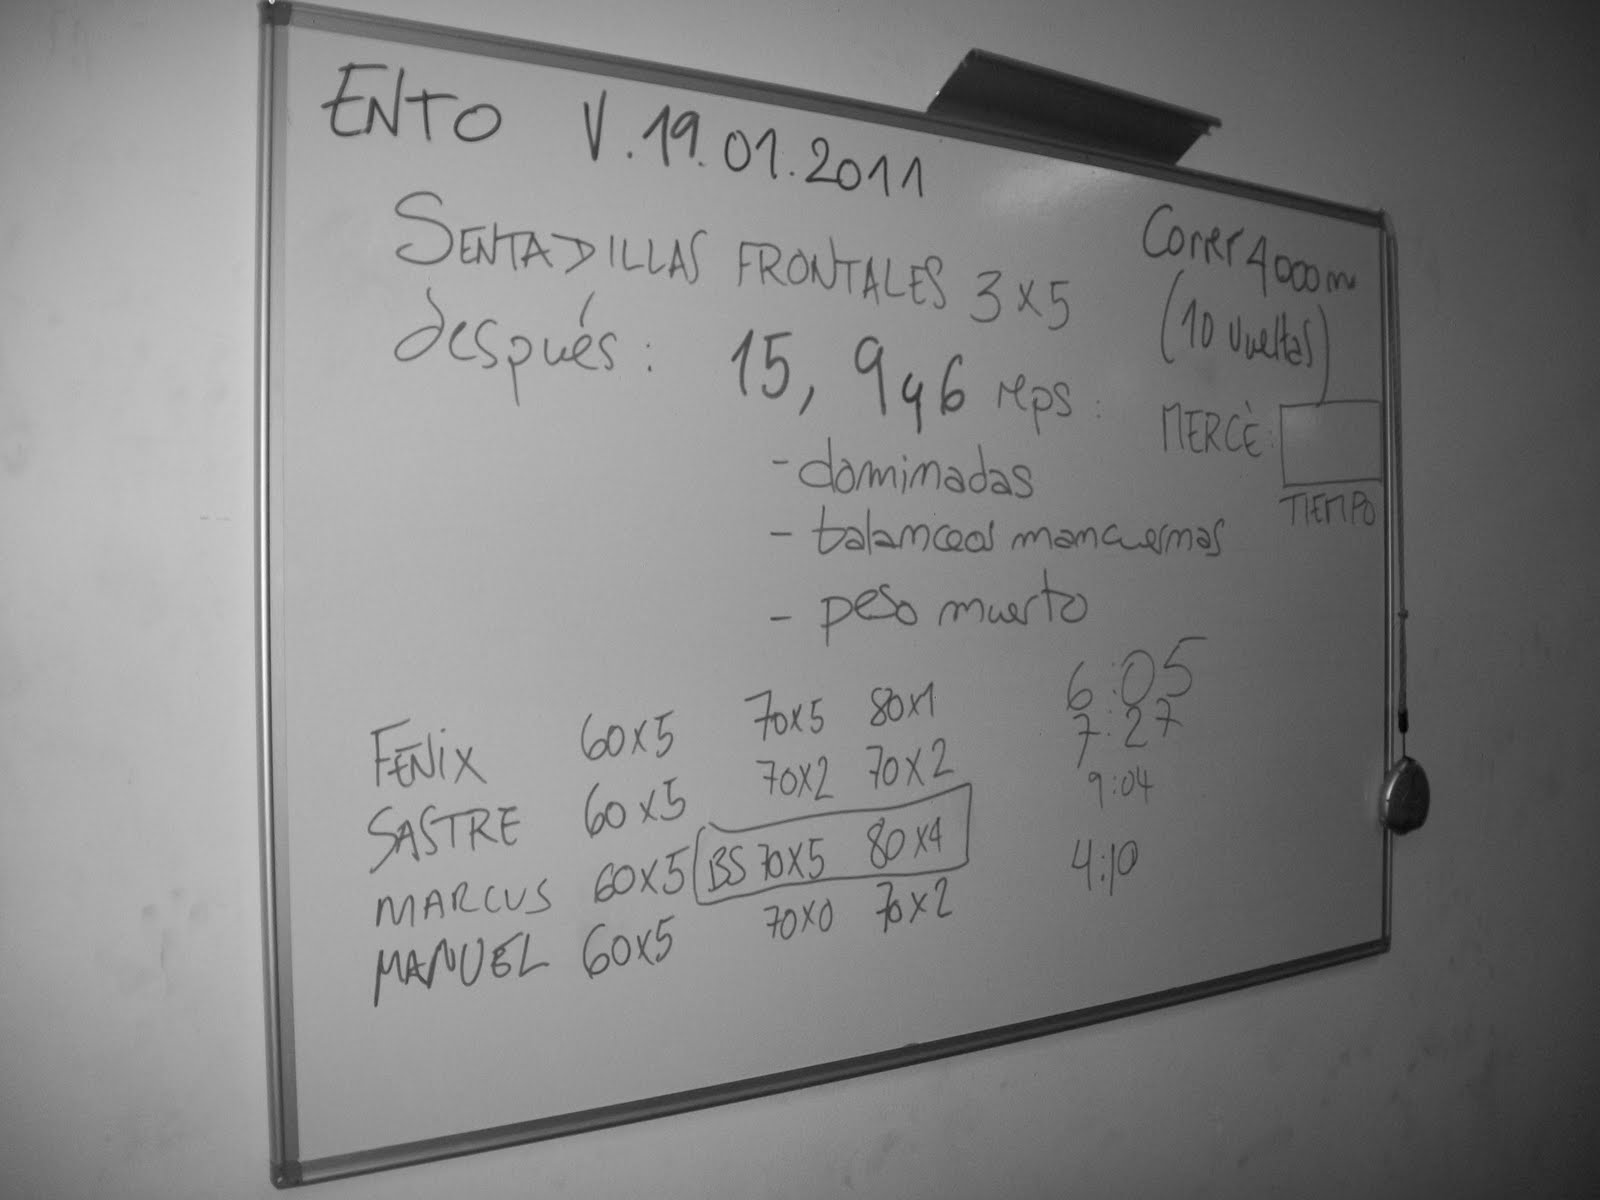 ENTO V.19.01.2011
SENTADILLAS FRONTALES 3x5
después: 15, 9 y 6 reps:
- dominadas
- balanceos mancuernas
- peso muerto
Correr 4000m
(10 vueltas)
MERCÈ:
TIEMPO
FENIX 60x5 70x5 80x1 6:05
SASTRE 60x5 70x2 70x2 7:27
MARCUS 60x5 BS 70x5 80x4 9:04
MANUEL 60x5 70x0 70x2 4:10